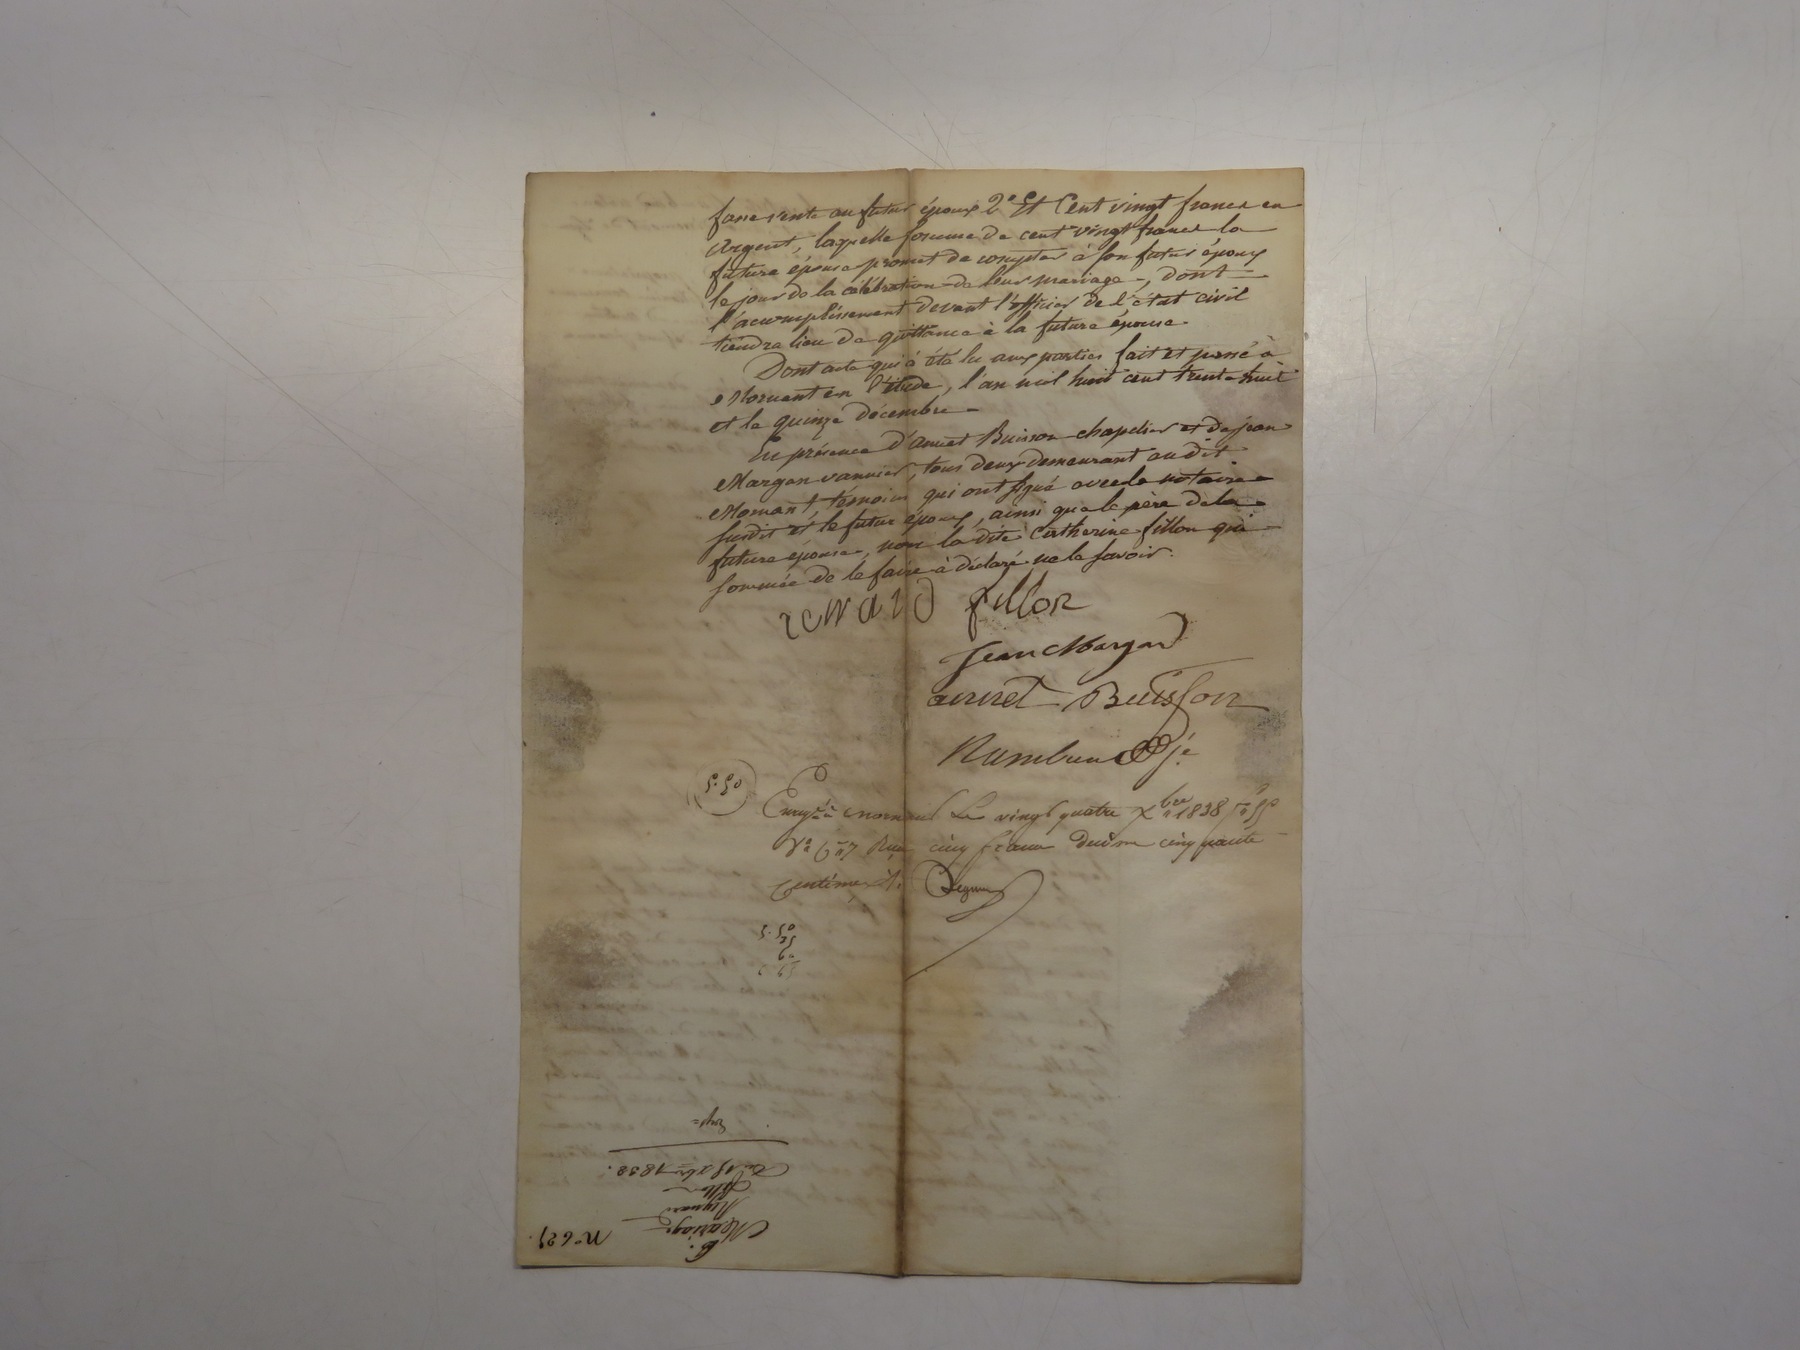 faire vente au futur époux 2° Et Cent vingt francs en
Argent, laquelle somme de cent vingt francs la
future épouse promet de compter à son futur époux
le jour de la célébration de leur mariage, dont
l'accomplissement devant l'officier de l'état civil
tiendra lieu de quittance à la future épouse.
Dont acte qui à été lu aux parties fait et passé à
Mornant en l'étude, l'an mil huit cent trente huit
et le quinze décembre
En présence d'annet Buisson chapelier et de jean
Margan vannier, tous deux demeurant au dit
Mornant, témoins qui ont signé avec le notaire
susdit et le futur époux, ainsi que le père de la
future épouse, non la dite Catherine fillon qui
sommée de le faire à déclaré ne le savoir.
fillon
Jean Margan
annet Buisson
5.50
Enreg.é à Mornant Le vingt quatre Xbre 1838 f°
cinq francs décime cinquante
centimes
5.50
Enreg.
Du 15 xbre 1838.
fillon
Mariage
6.
N° 629.